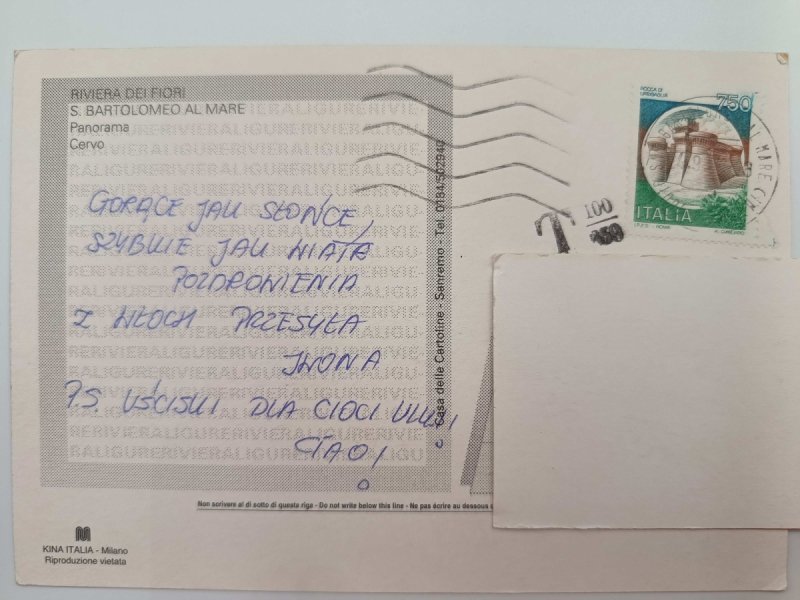 RIVIERA DEI FIORI
S. BARTOLOMEO AL MARE
Panorama
Cervo
GORĄCE JAK SŁOŃCE,
SZYBKIE JAK WIATR
POZDROWIENIA
Z WŁOCH PRZESYŁA
IWONA
P.S. UŚCISKI DLA CIOCI
CIAO!
Casa delle Cartoline - Sanremo - Tel. 0184/502940
T 100
ROCCA DI
URBISAGLIA
750
ITALIA
I.P.Z.S. - ROMA
AL MARE
Non scrivere al di sotto di questa riga - Do not write below this line - Ne pas écrire au dessous
KINA ITALIA - Milano
Riproduzione vietata